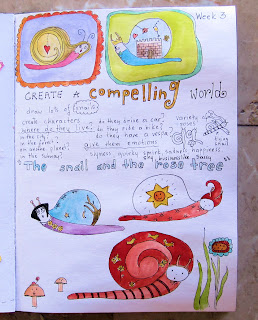 Week 3
CREATE A compelling World
draw lots of snails
create characters
where do they live?
in the city?
in the forest?
an outer planet
in the subway?
do they drive a car?
do they ride a bike?
do they have a
give them emotions
shyness, quirky, spirit, sadness, happiness,
shy, businesslike, sassy
variety of
noses
"The snail and the rose tree"